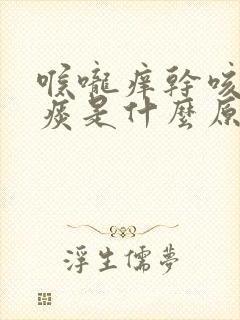 喉嚨痒幹咳
痰是什麼原
浮生儒夢